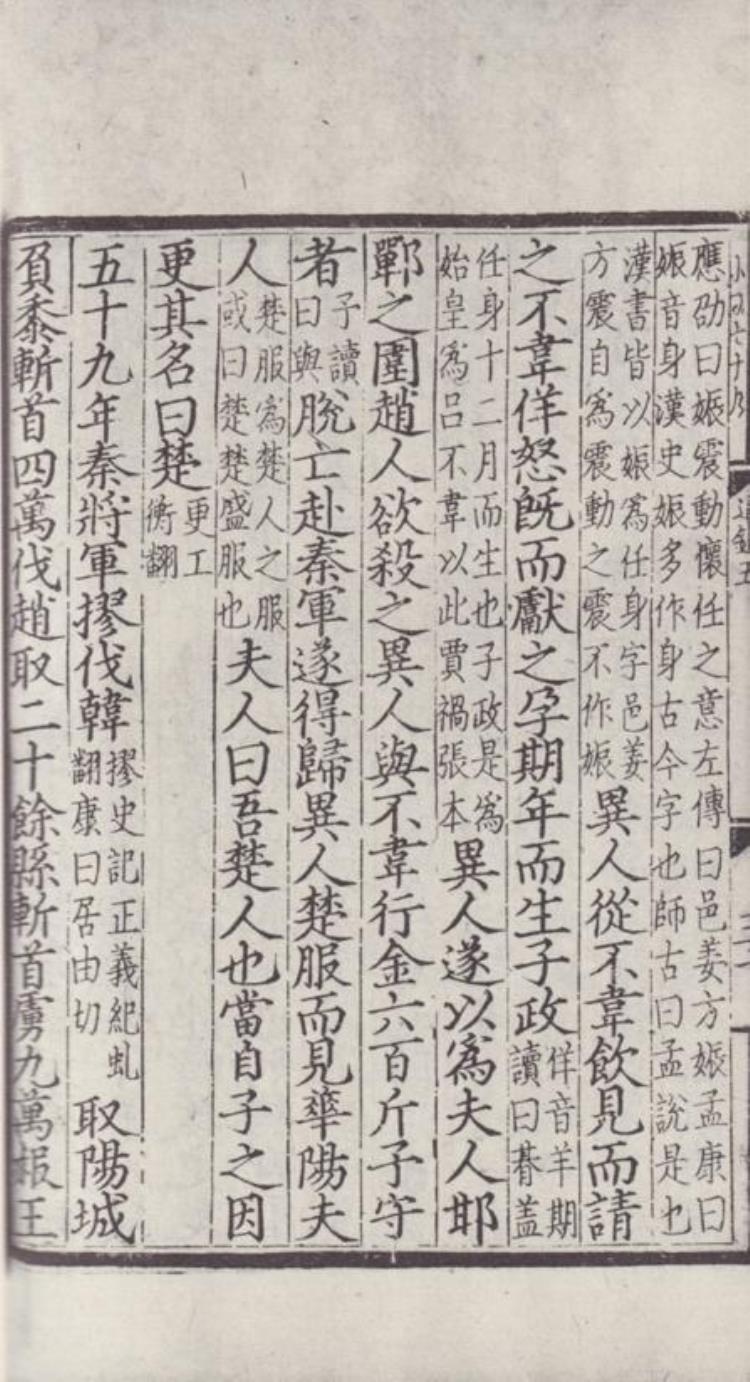 應劭曰娠震動懷任之意左傳曰邑姜方娠孟康曰
娠音身漢史娠多作身古今字也師古曰孟說是也
漢書皆以娠爲任身字邑姜
方震自爲震動之震不作娠
異人從不韋飲見而請
之不韋佯怒既而獻之孕期年而生子政
佯音羊期
讀曰朞盖
任身十二月而生也子政是爲
始皇爲呂不韋以此賈禍張本
異人遂以爲夫人邯
鄲之圍趙人欲殺之異人與不韋行金六百斤子守
者
子讀
曰與
脫亡赴秦軍遂得歸異人楚服而見華陽夫
人
楚服爲楚人之服
或曰楚楚盛服也
夫人曰吾楚人也當自子之因
更其名曰楚
更工
衡翻
五十九年秦將軍摎伐韓
摎史記正義紀虬
翻康曰居由切
取陽城
負黍斬首四萬伐趙取二十餘縣斬首虜九萬赧王